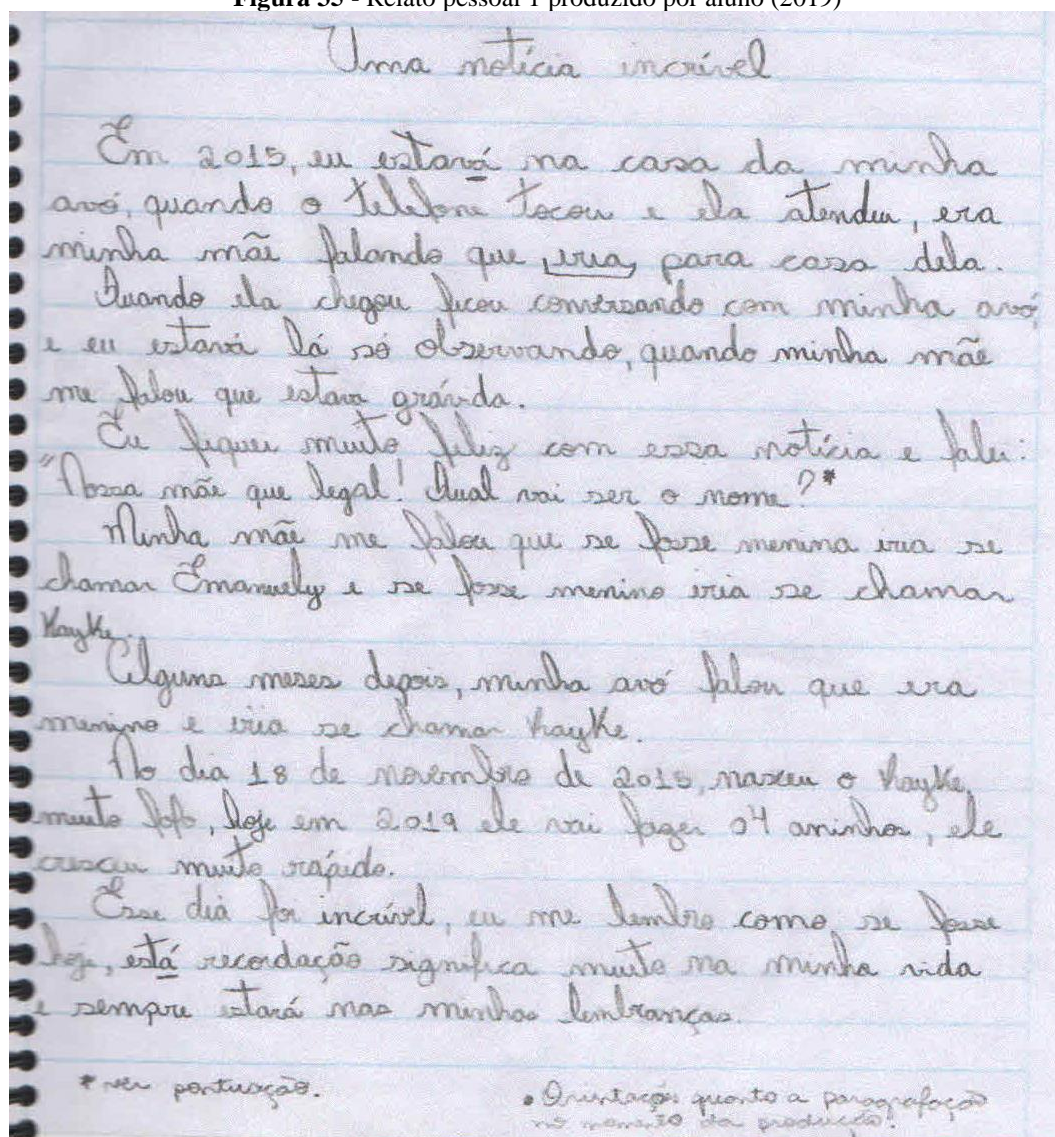 Figura 35 - Relato pessoal 1 produzido por aluno (2019)
Uma notícia incrível
Em 2015, eu estavá na casa da minha
avó, quando o telefone tocou e ela atendeu, era
minha mãe falando que iria, para casa dela.
Quando ela chegou ficou conversando com minha avó,
e eu estavá lá só observando, quando minha mãe
me falou que estava grávida.
Eu fiquei muito feliz com essa notícia e falei:
"Nossa mãe que legal! Qual vai ser o nome?*
Minha mãe me falou que se fosse menina iria se
chamar Emanuely e se fosse menino iria se chamar
Kayke.
Alguns meses depois, minha avó falou que era
menino e iria se chamar Kayke.
No dia 18 de novembro de 2015, nasceu o Kayke,
muito fofo, hoje em 2019 ele vai fazer 04 aninhos, ele
cresceu muito rápido.
Esse dia foi incrível, eu me lembro como se fosse
hoje, está recordação significa muito na minha vida
e sempre estará nas minhas lembranças.
* ver pontuação.
• Orientações quanto a paragrafação
no momento da produção!